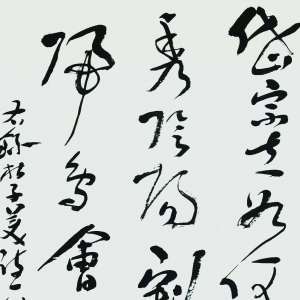 岱宗夫如何
秀陰陽割
歸鳥會
右錄杜子美詩一